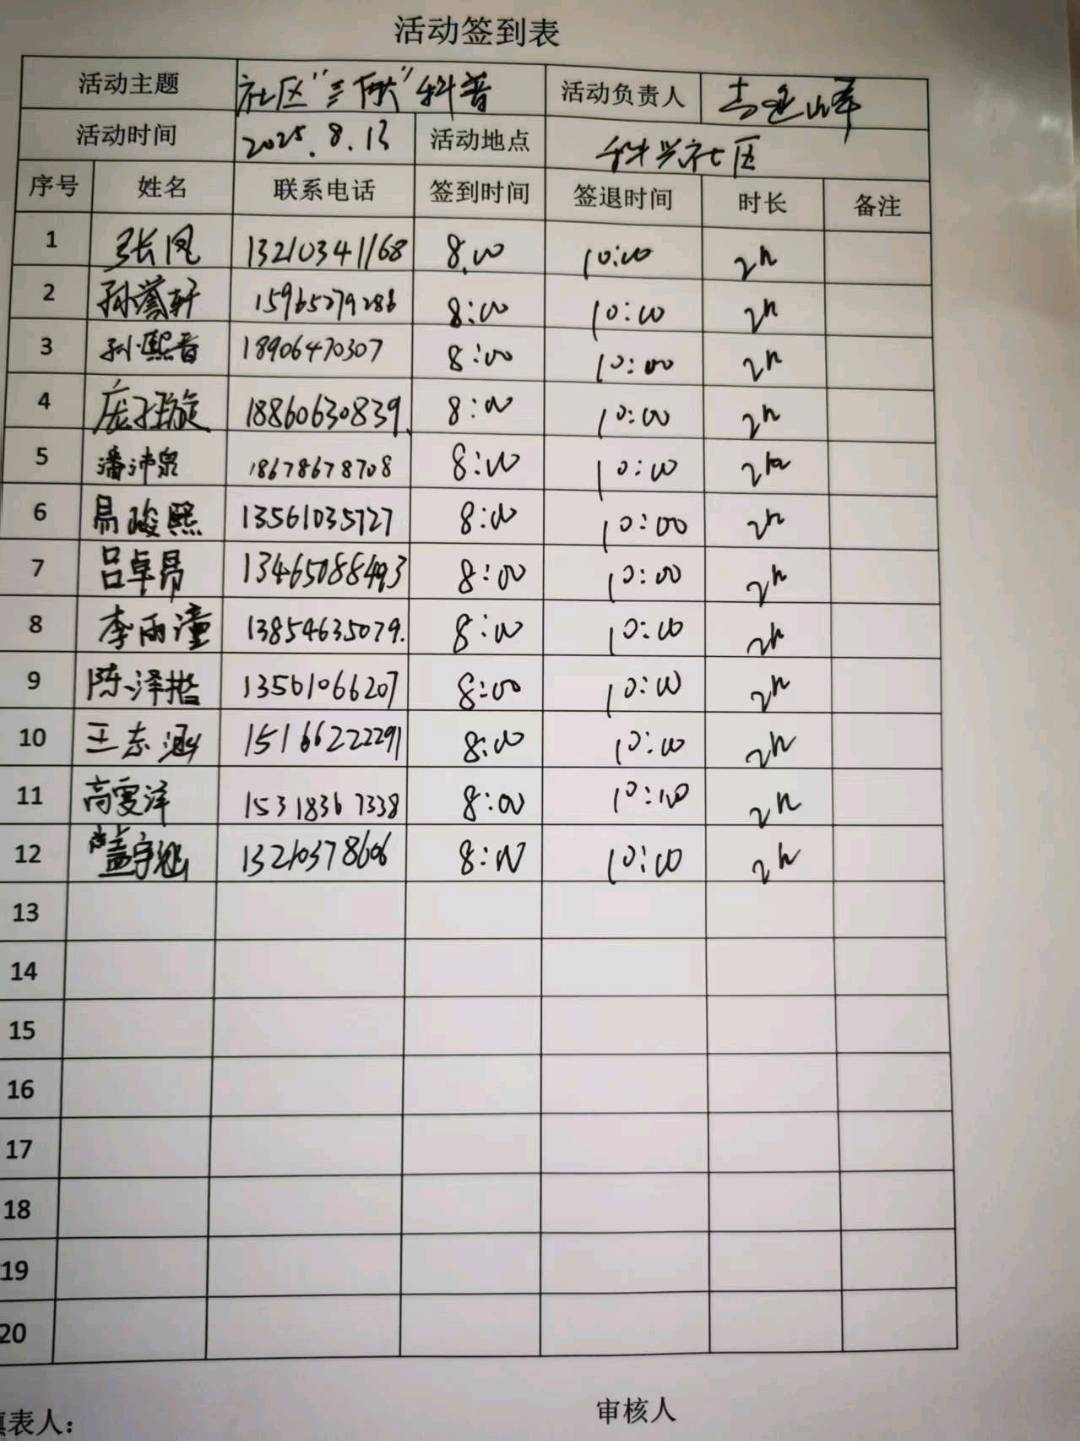 活动签到表
活动主题 社区"三伏"科普 活动负责人
活动时间 2025.8.13 活动地点 科兴社区
序号 姓名 联系电话 签到时间 签退时间 时长 备注
1 张凤 13210341168 8:00 10:00 2h
2 孙誉轩 15965279286 8:00 10:00 2h
3 孙熙晋 18906470307 8:00 10:00 2h
4 庞钰璇 18860630839. 8:00 10:00 2h
5 潘沛泉 18678678708 8:00 10:00 2h
6 易峻熙 13561035727 8:00 10:00 2h
7 吕卓昜 13465088493 8:00 10:00 2h
8 李雨潼 13854635079. 8:00 10:00 2h
9 陈泽楷 13561066207 8:00 10:00 2h
10 王志涵 15166222291 8:00 10:00 2h
11 高雯洋 15318367338 8:00 10:00 2h
12 盖宇涵 13210378606 8:00 10:00 2h
13
14
15
16
17
18
19
20
填表人： 审核人